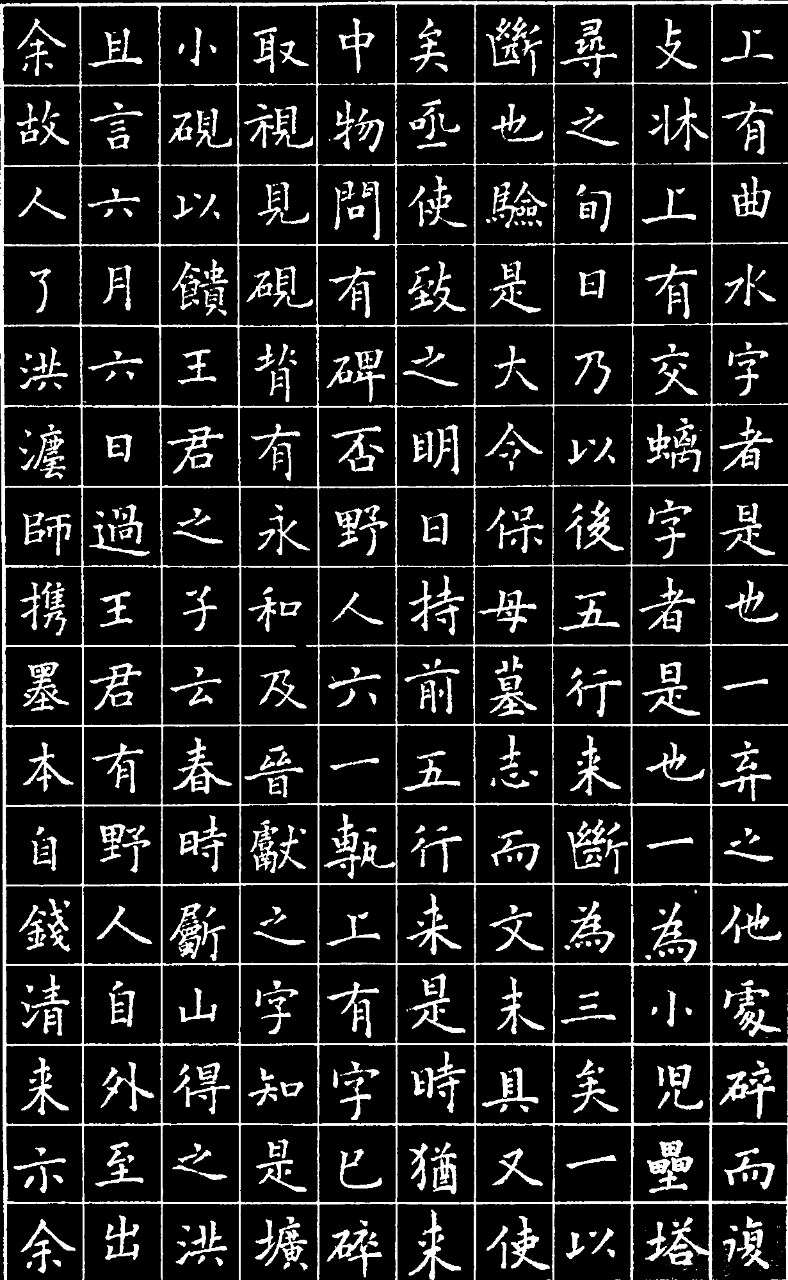 余故人了洪瀍師携墨本自錢清来示余
且言六月六日過王君有野人自外至出
小硯以饋王君之子云春時斸山得之洪
取視見硯背有永和及晉獻之字知是壙
中物問有碑否野人六一甎上有字已碎
矣亟使致之明日持前五行来是時猶来
斷也驗是大令保母墓志而文未具又使
尋之旬日乃以後五行来斷為三矣一以
攴牀上有交螭字者是也一為小児壘塔
上有曲水字者是也一弃之他處碎而複